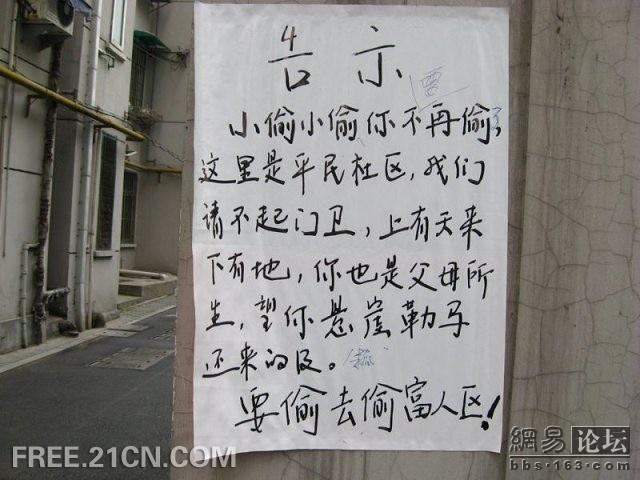 告示
小偷小偷你不要再偷了,
这里是平民社区,我们
请不起门卫,上有天来
下有地,你也是父母所
生,望你悬崖勒马
还来的及。
要偷去偷富人区!
FREE.21CN.COM
網易论坛
bbs·163.com